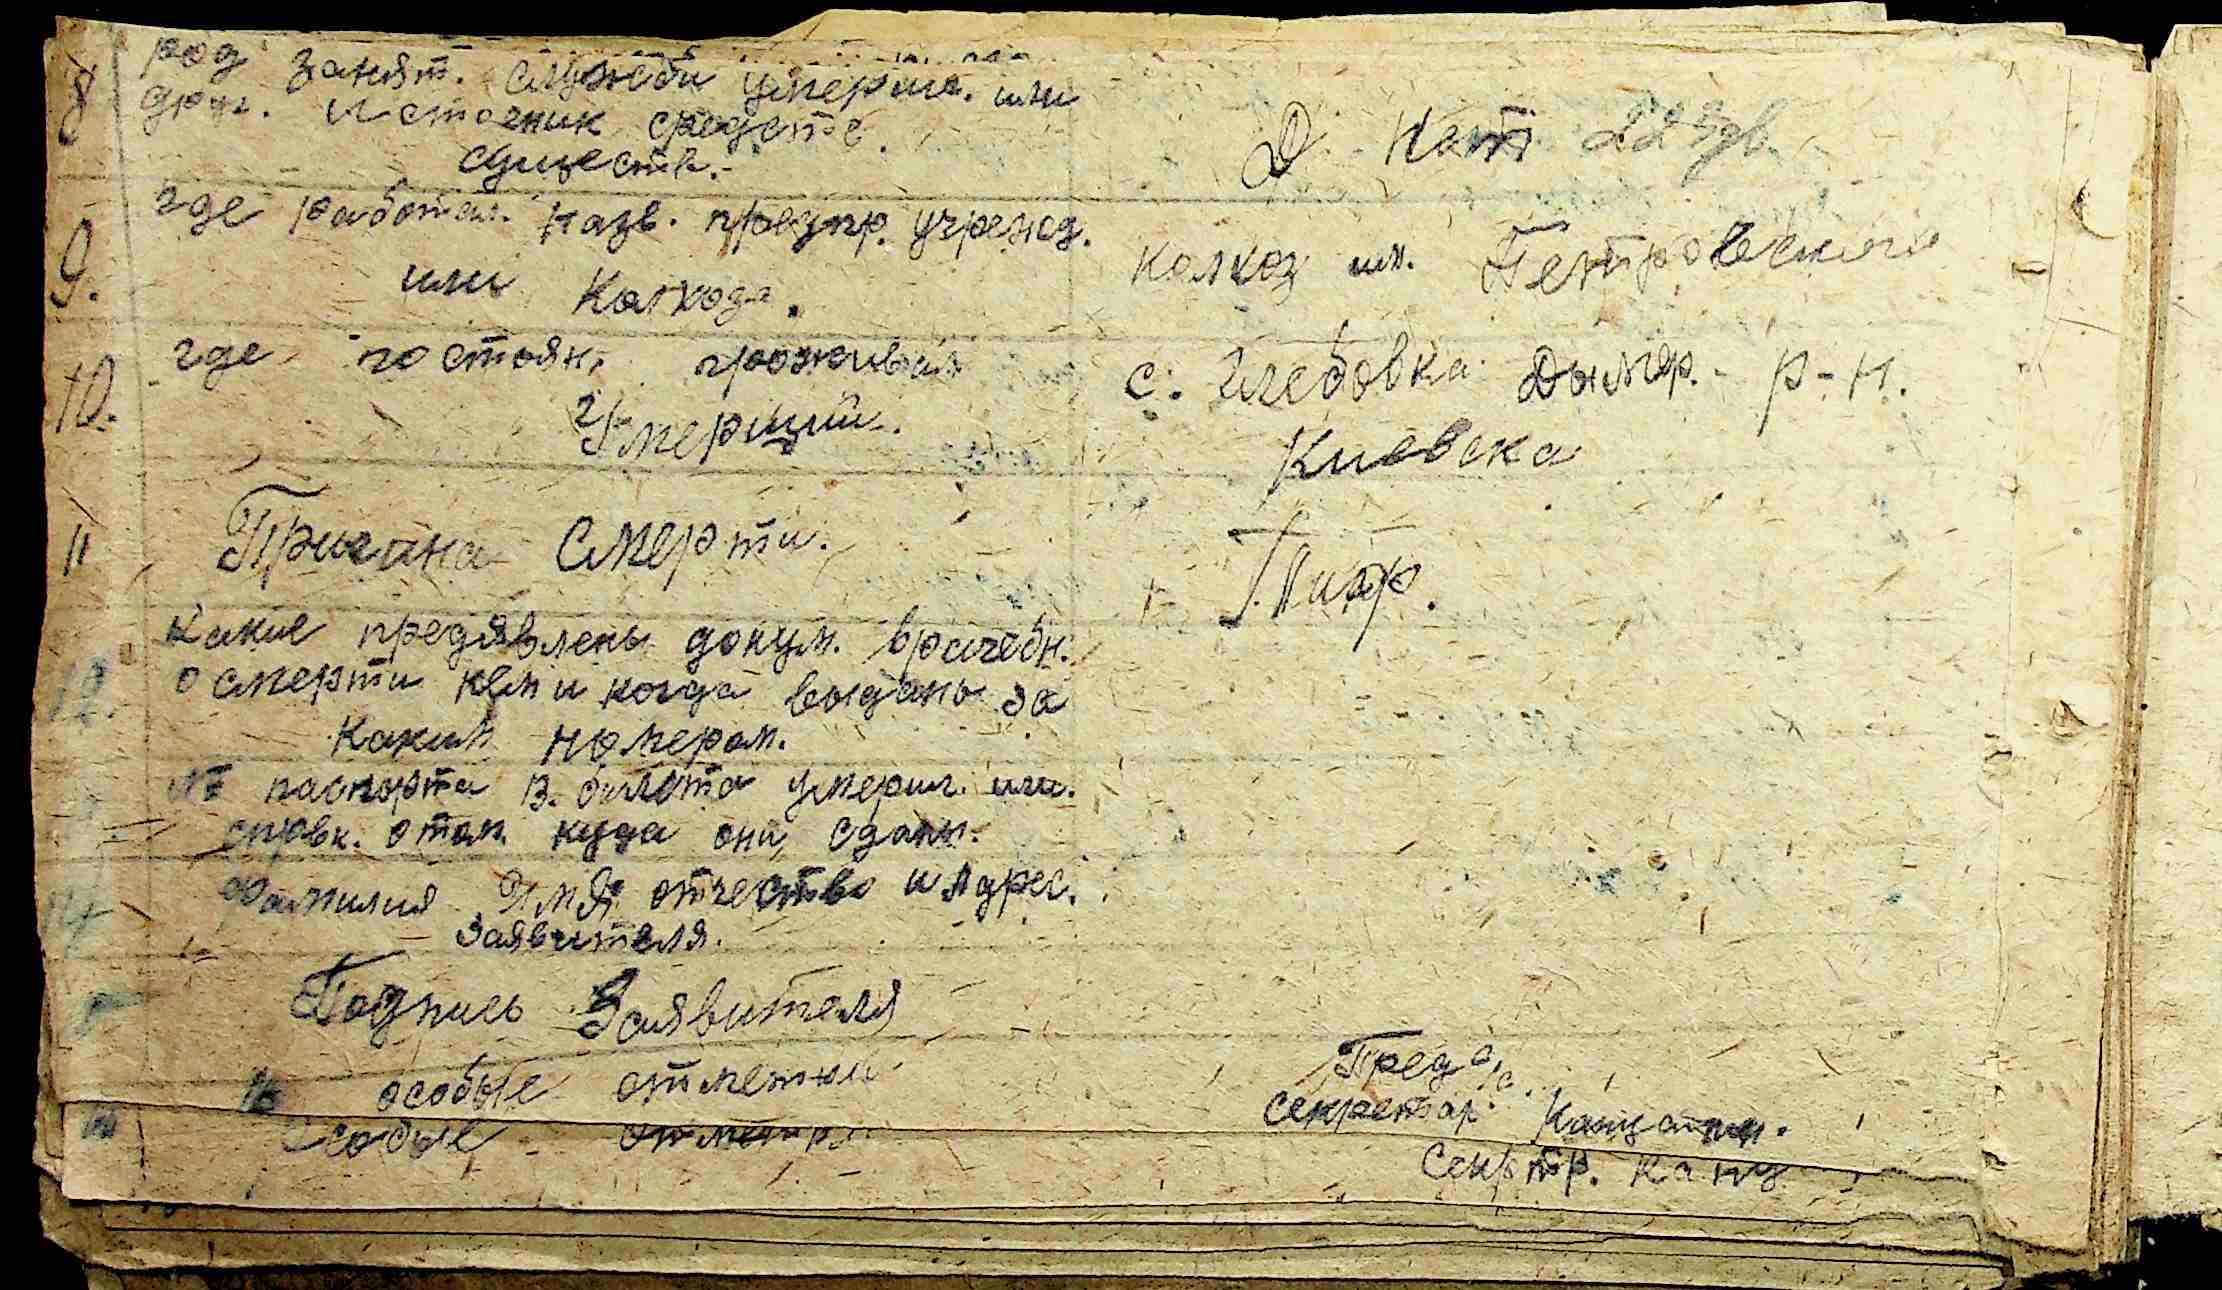 8 род занят. службы умерш. или
друг. источник средств.
существ.-
9. где работал. назв. предпр. учрежд.
или Колхоза.
колхоз им. Петровского
10. где постоян. проживал
Умерший.
с. Глебовка Дымер. р-н.
Киевска
11 Причина Смерти.
12. какие предявлены докум. врачебн.
о смерти кем и когда выданы за
каким номером.
№ паспорта в. билета умерш. или.
справк. о том. куда они сданы.
14 Фамилия Имя отчество и Адрес.
Заявителя.
Подпись Заявителя
16 особые отметки
Пред с/с.
секретар.
особые отметки
Секртр.